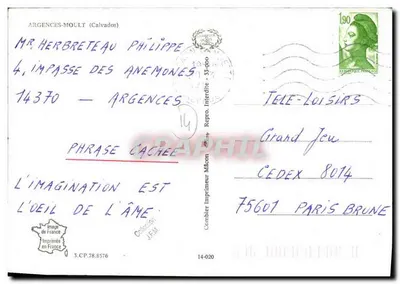 ARGENCES-MOULT (Calvados)
MR. HERBRETEAU PHILIPPE
4, IMPASSE DES ANEMONES
14370 — ARGENCES
14
PHRASE CACHEE
L'IMAGINATION EST
L'OEIL DE L'ÂME.
Image de France
Imprimée en France
3.CP.78.8570
14-020
Combier Imprimeur Mâcon
Repro. Interdite - 55-000
1,90
TELE-LOISIRS
Grand Jeu
CEDEX 8014
75601 PARIS BRUNE